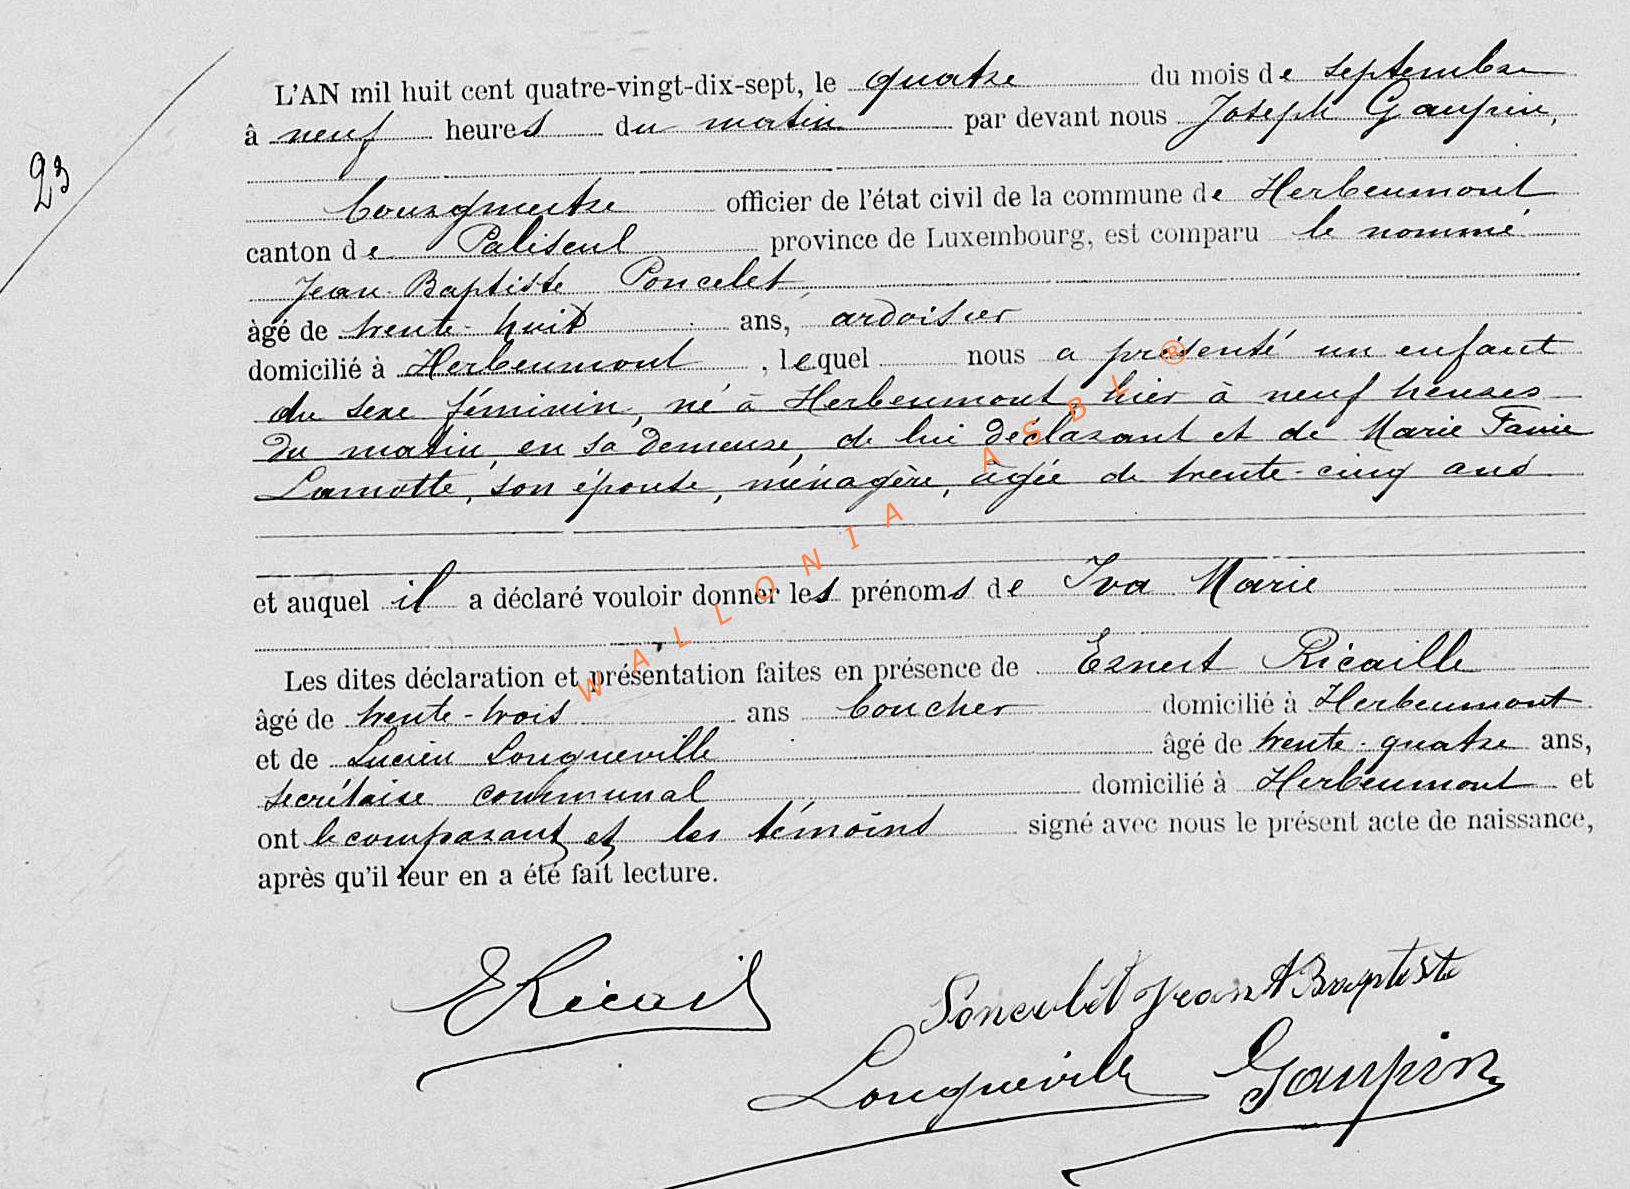 23
L'AN mil huit cent quatre-vingt-dix-sept, le quatre du mois de septembre
à neuf heures du matin par devant nous Joseph Gaupin,
bourgmestre officier de l'état civil de la commune de Herbeumont
canton de Paliseul province de Luxembourg, est comparu le nommé
Jean-Baptiste Poncelet,
âgé de trente-huit ans, ardoisier
domicilié à Herbeumont, lequel nous a présenté un enfant
du sexe féminin, né à Herbeumont, hier à neuf heures
du matin, en sa demeure, de lui déclarant et de Marie Fanie
Lamotte, son épouse, ménagère, âgée de trente-cinq ans
et auquel il a déclaré vouloir donner les prénoms de Iva Marie
Les dites déclaration et présentation faites en présence de Ernest Ricaille
âgé de trente-trois ans boucher domicilié à Herbeumont
et de Lucien Longueville âgé de trente-quatre ans,
secrétaire communal domicilié à Herbeumont et
ont le comparant et les témoins signé avec nous le présent acte de naissance,
après qu'il leur en a été fait lecture.
E Ricail
Poncelet Jean Baptiste
Longueville Gaupin
WALLONIA ASBL ®